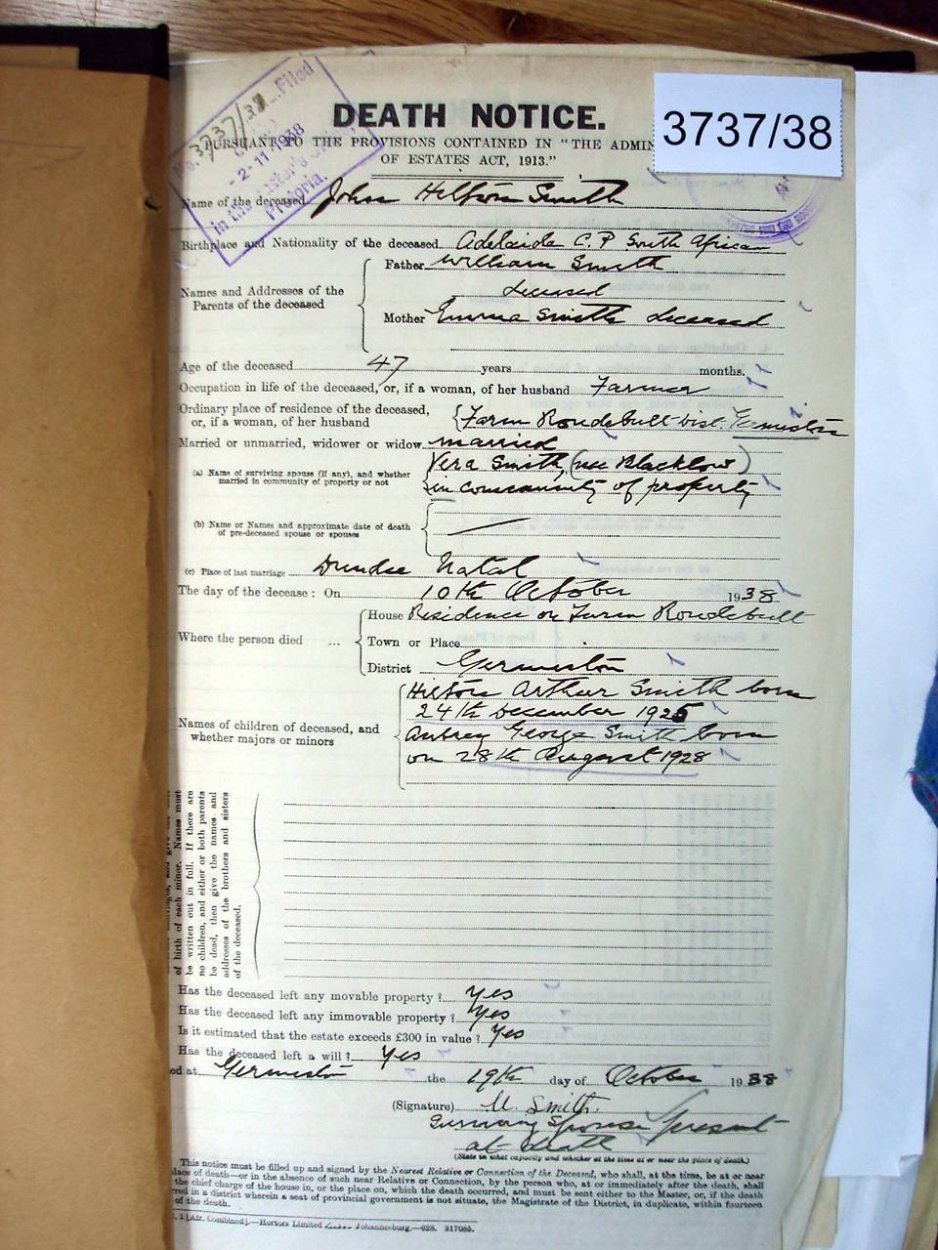 No. 3737/38 Filed
-2-11-1938
in the Master's
Pretoria.
3737/38
DEATH NOTICE.
PURSUANT TO THE PROVISIONS CONTAINED IN "THE ADMIN
OF ESTATES ACT, 1913."
Name of the deceased John Smith
Birthplace and Nationality of the deceased Adelaide C.P South African
Names and Addresses of the Parents of the deceased
Father William Smith
deceased
Mother Emma Smith deceased
Age of the deceased 47 years months.
Occupation in life of the deceased, or, if a woman, of her husband Farmer
Ordinary place of residence of the deceased,
or, if a woman, of her husband Farm Roodebult Dist. Germiston
Married or unmarried, widower or widow married
(a) Name of surviving spouse (if any), and whether
married in community of property or not
Vera Smith, (nee Blacklow)
in community of property
(b) Name or Names and approximate date of death
of pre-deceased spouse or spouses
(c) Place of last marriage Dundee Natal
The day of the decease: On 10th October 1938
Where the person died ...
House Residence on Farm Roodebult
Town or Place
District Germiston
Names of children of deceased, and
whether majors or minors
Arthur Smith born
24th December 1925
Aubrey George Smith born
on 28th August 1928
of birth of each minor. Names must
be written out in full. If there are
no children, and either or both parents
be dead, then give the names and
addresses of the brothers and sisters
of the deceased.
Has the deceased left any movable property? Yes
Has the deceased left any immovable property? Yes
Is it estimated that the estate exceeds £300 in value? Yes
Has the deceased left a will? Yes
ed at Germiston the 19th day of October 1938
(Signature) Smith.
Surviving Spouse present
at death
(State in what capacity and whether at the time at or near the place of death.)
This notice must be filled up and signed by the Nearest Relative or Connection of the Deceased, who shall, at the time, be at or near
place of death—or in the absence of such near Relative or Connection, by the person who, at or immediately after the death, shall
the chief charge of the house in, or the place on, which the death occurred, and must be sent either to the Master, or, if the death
rred in a district wherein a seat of provincial government is not situate, the Magistrate of the District, in duplicate, within fourteen
of the death.
1 [Afr. Combined].—Hortors Limited Johannesburg.—628. 217085.